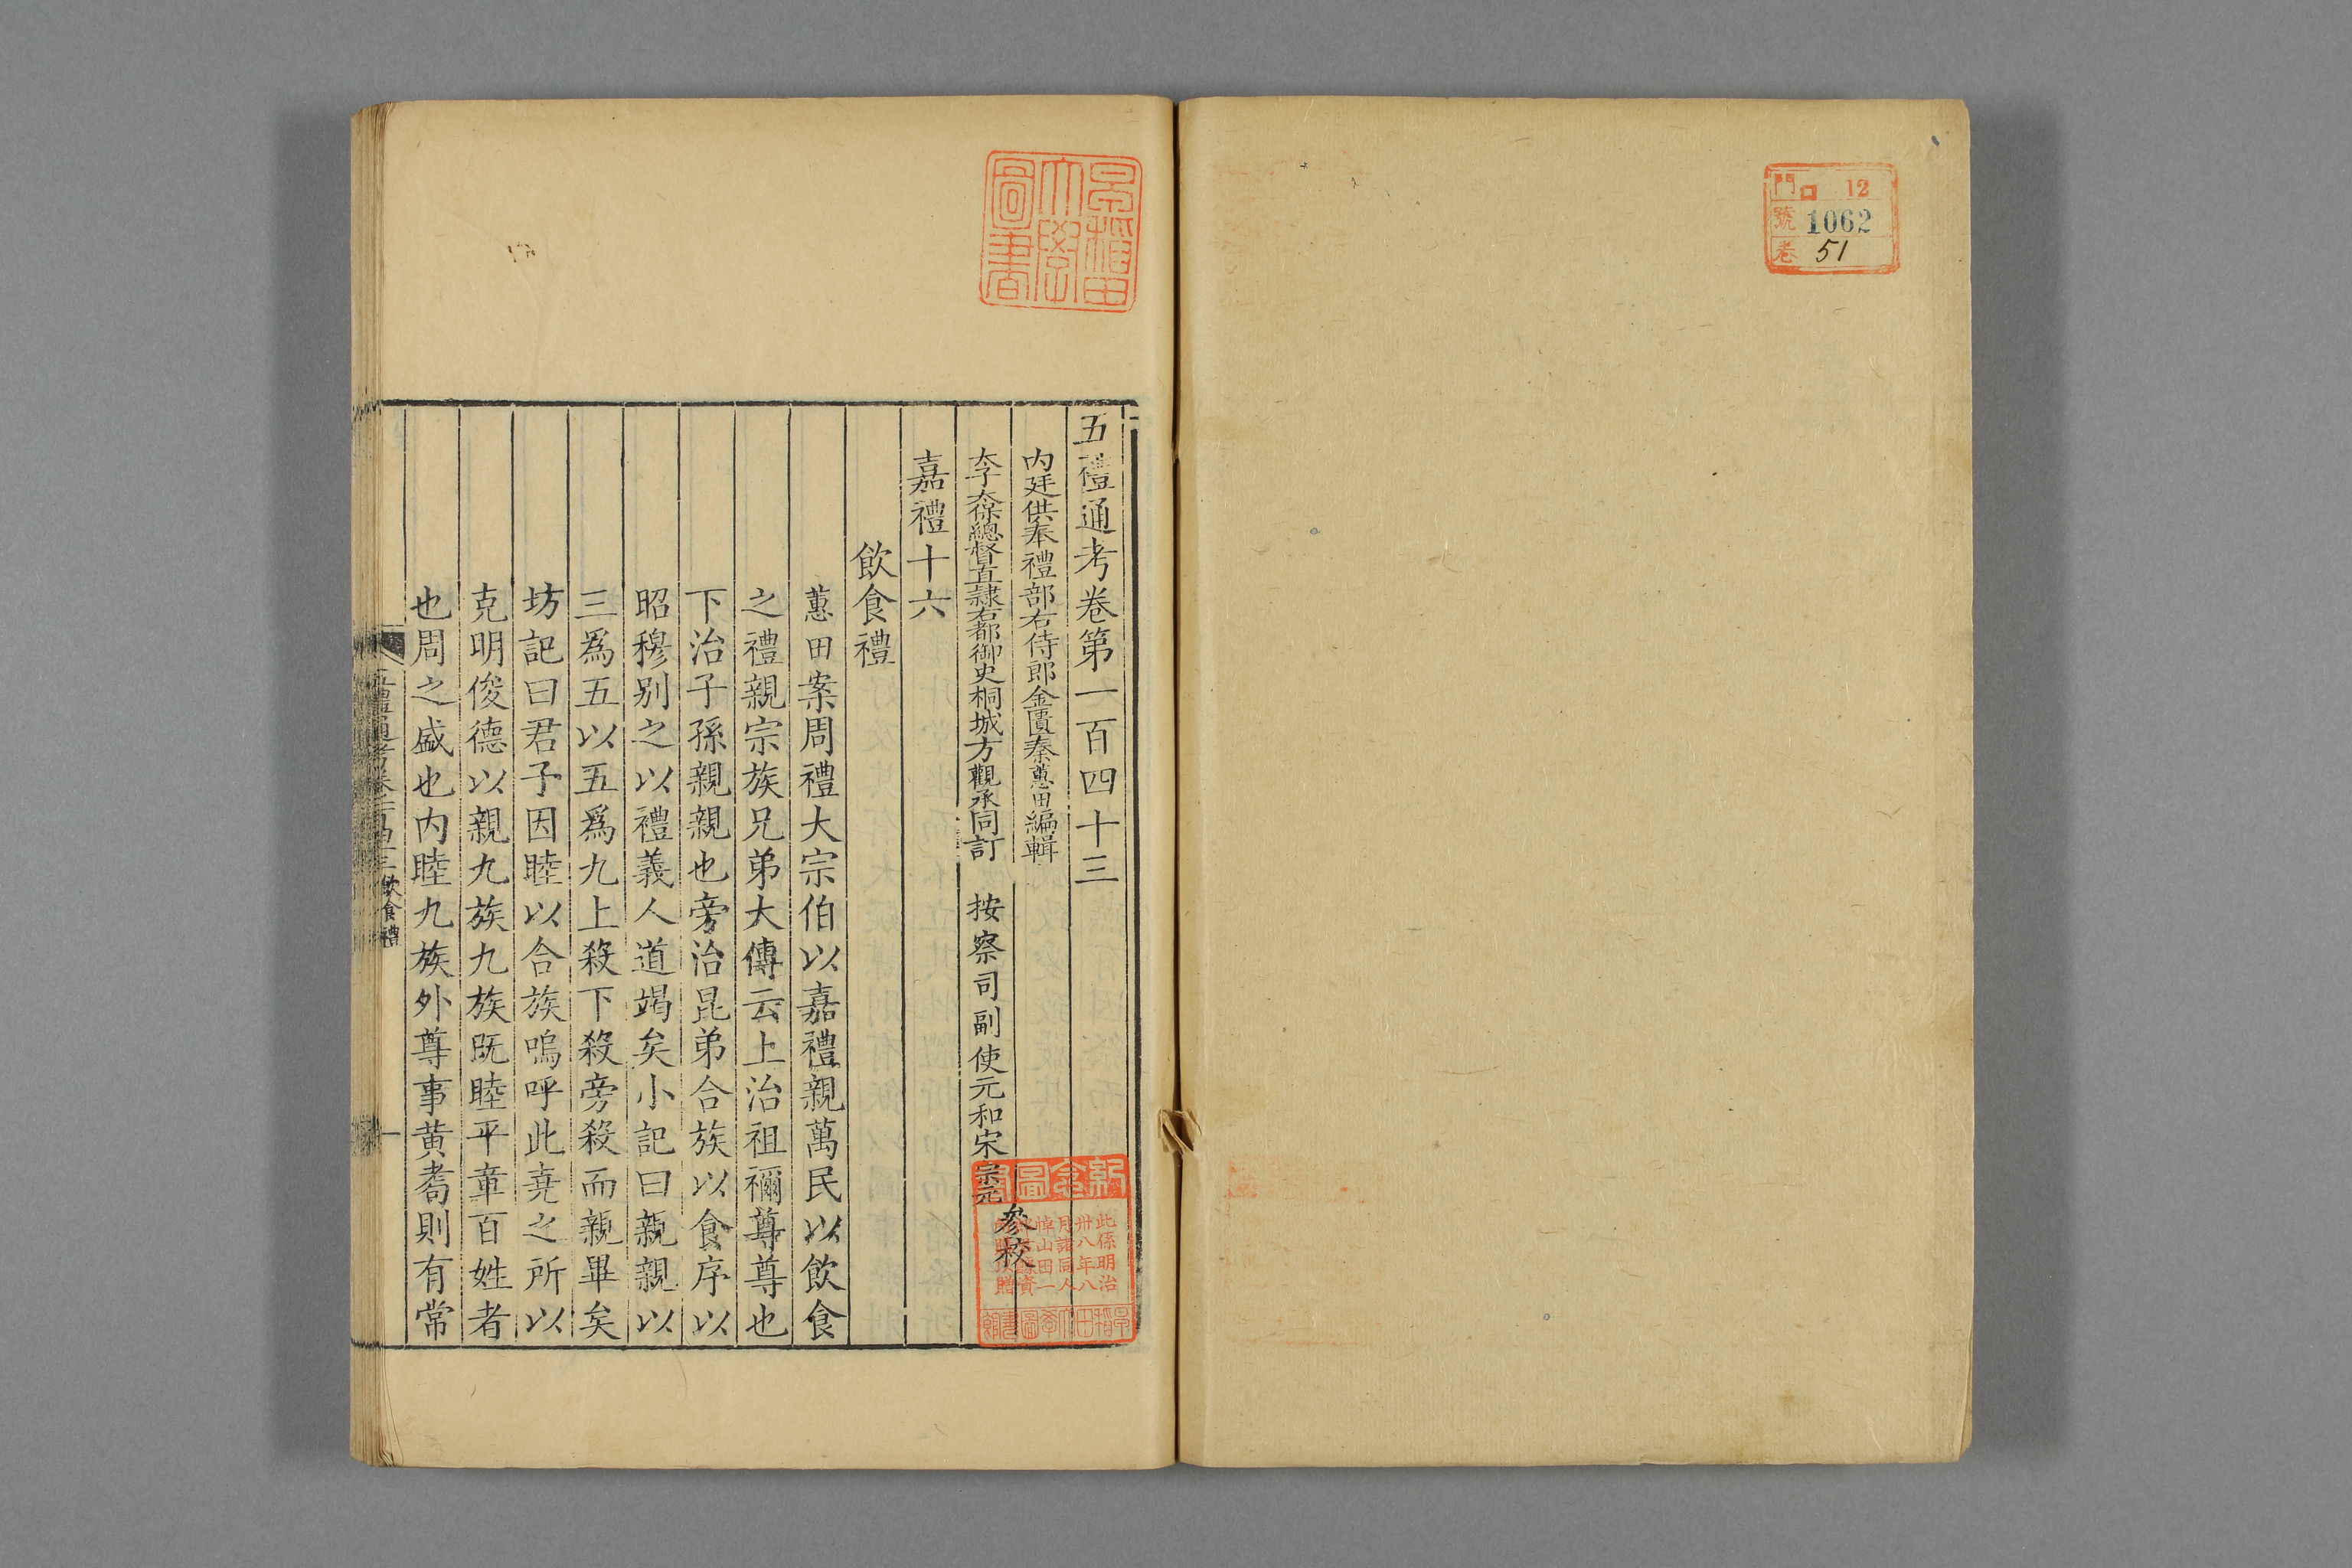 門 ロ 12
號 1062
卷 51
早稻田大學圖書
五禮通考卷第一百四十三
内廷供奉禮部右侍郎金匱秦蕙田編輯
太子太保總督直隸右都御史桐城方觀承同訂
按察司副使元和宋宗元參校
嘉禮十六
飲食禮
蕙田案周禮大宗伯以嘉禮親萬民以飲食
之禮親宗族兄弟大傳云上治祖禰尊尊也
下治子孫親親也旁治昆弟合族以食序以
昭穆别之以禮義人道竭矣小記曰親親以
三爲五以五爲九上殺下殺旁殺而親畢矣
坊記曰君子因睦以合族嗚呼此堯之所以
克明俊德以親九族九族既睦平章百姓者
也周之盛也内睦九族外尊事黃耇則有常
五禮通考卷一百四十三 飲食禮
一
紀念圖書
此係明治
卅八年八
月諸同人
悼山田一
早稻田大學圖書館